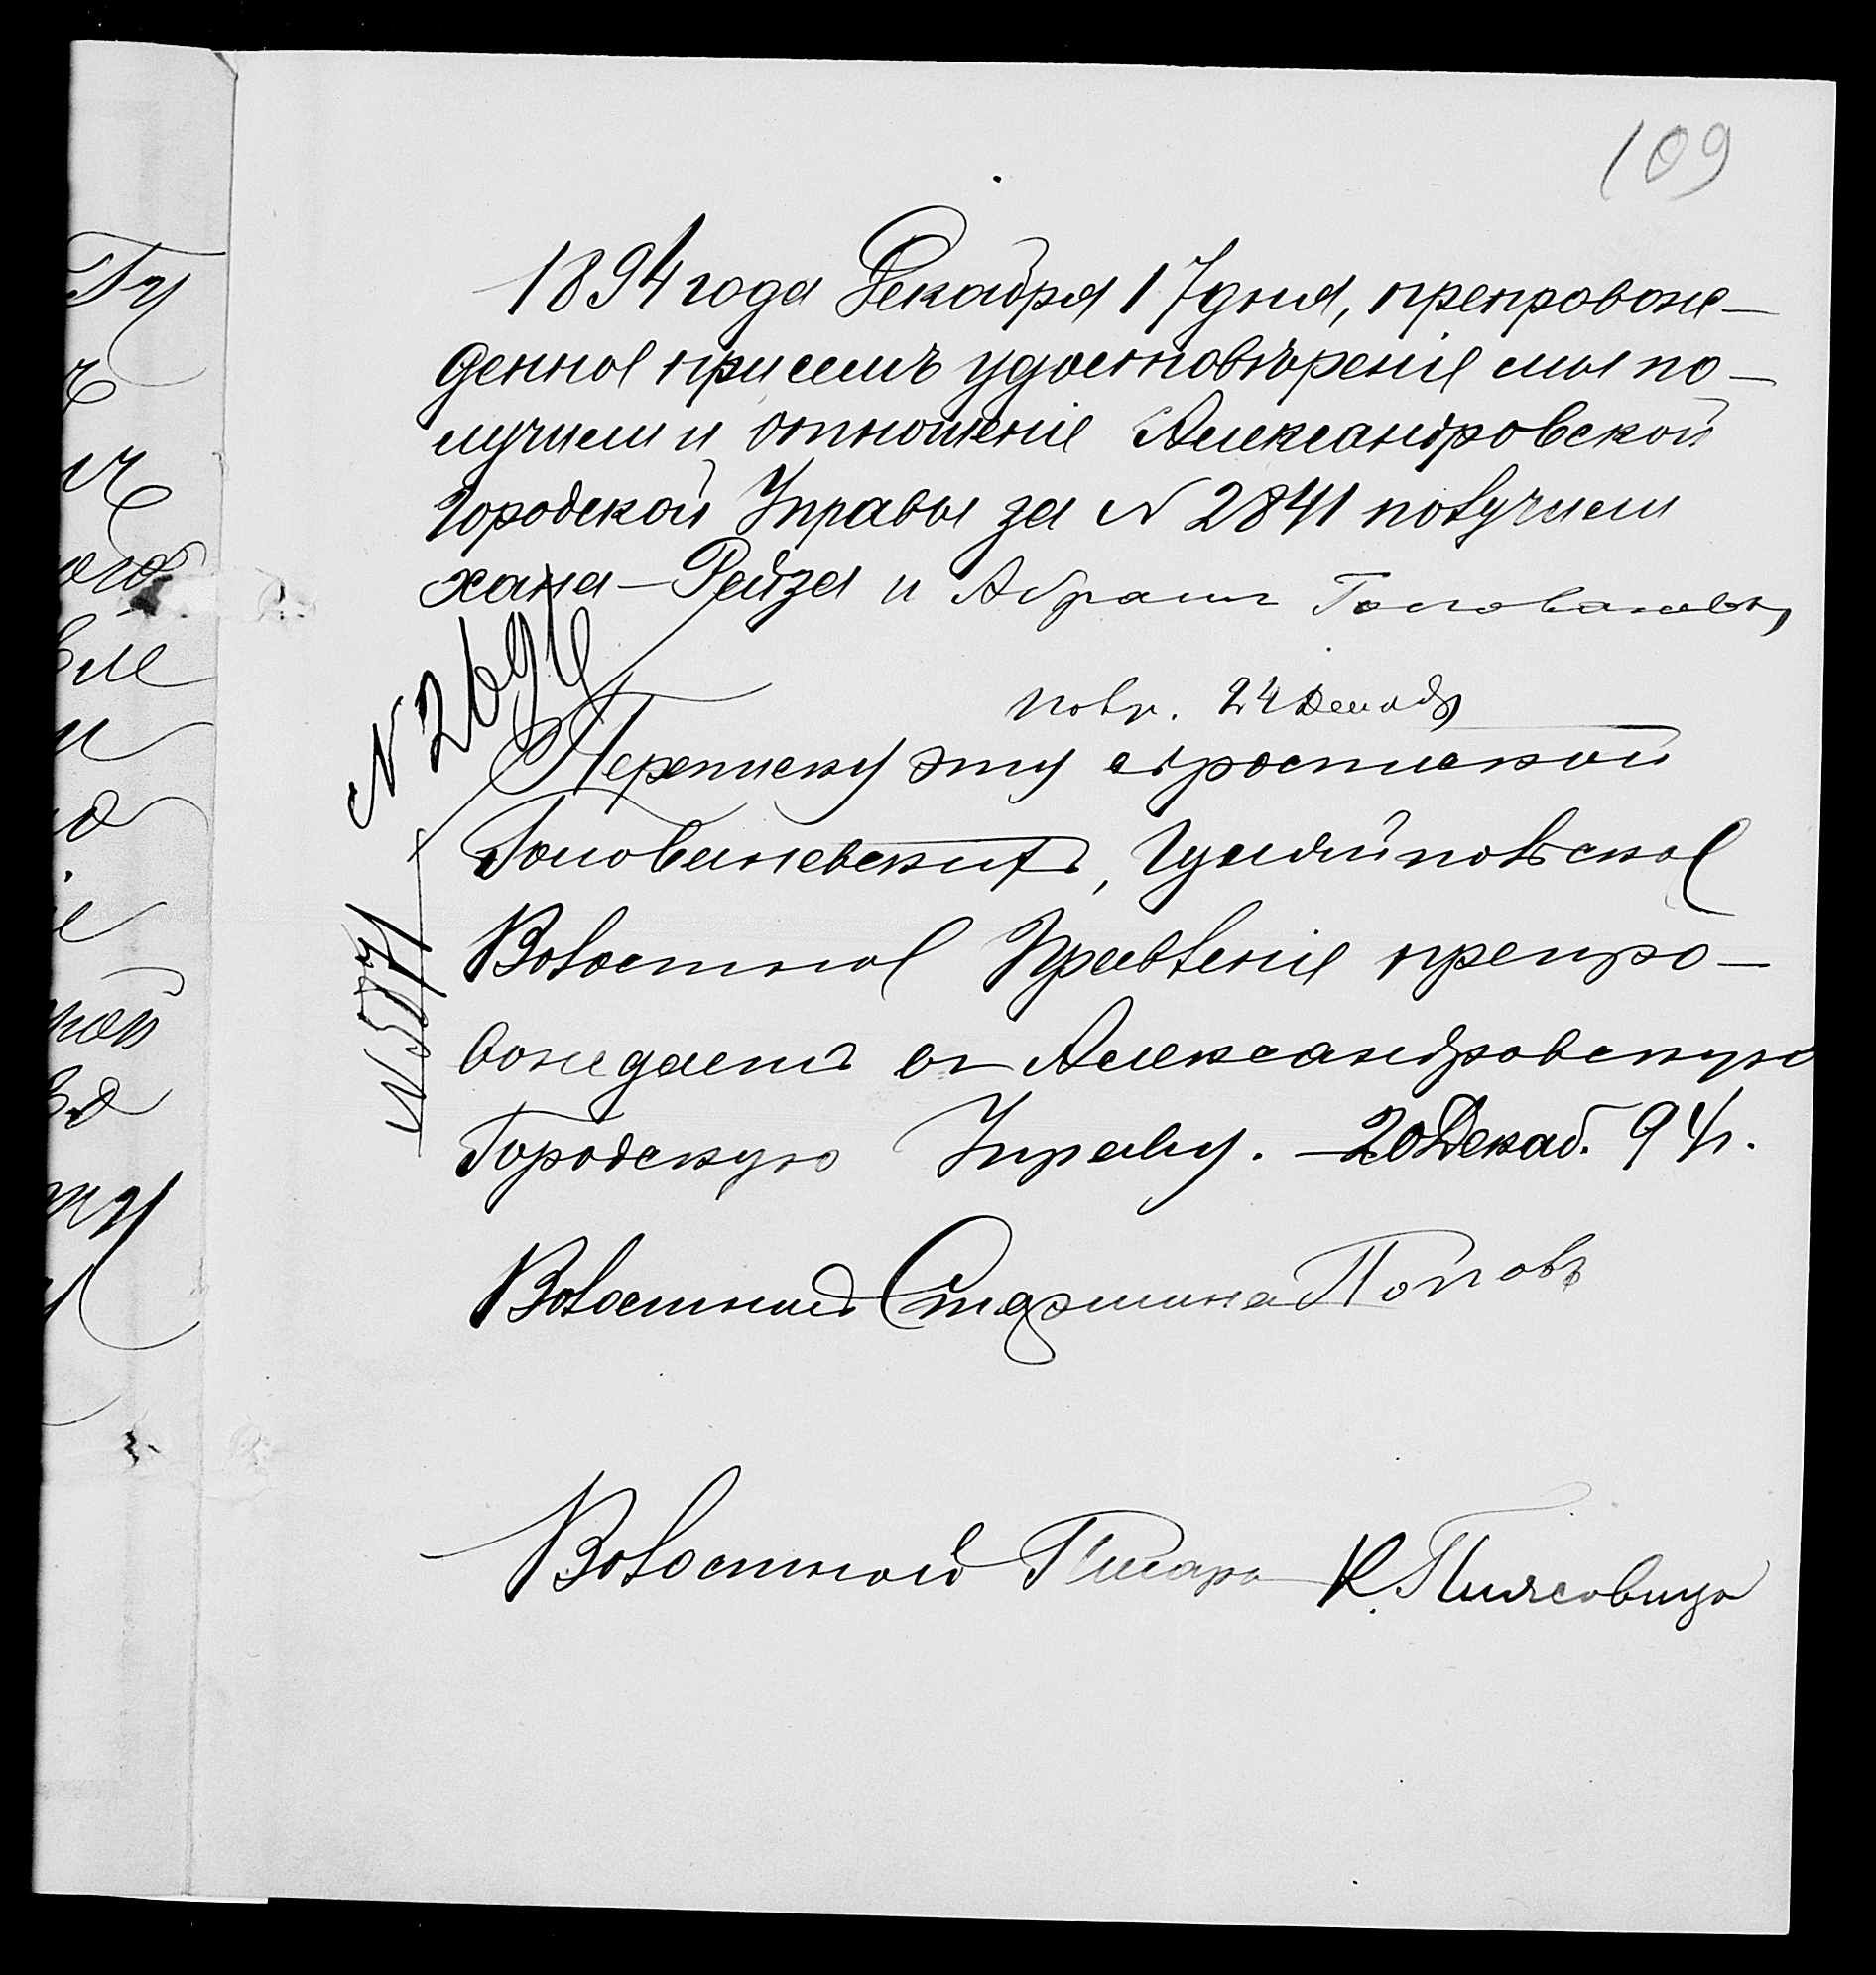 109
1894 года Декабря 17 дня, препровож-
денное при семъ удостовѣреніе мы по-
лучили и отношеніе Александровской
Городской Управы за N 2841 получили
Хана-Рейза и Абрамъ
N 2694
24 Декабр
Переписку эту съ роспиской
Голованевскихъ, Гуляйпольское
Волостное Правленіе препро-
вождаетъ въ Александровскую
Городскую Управу. - 20 Декаб. 94 г.
N 5771
Волостный Старшина Поповъ
Волостной Писарь К.